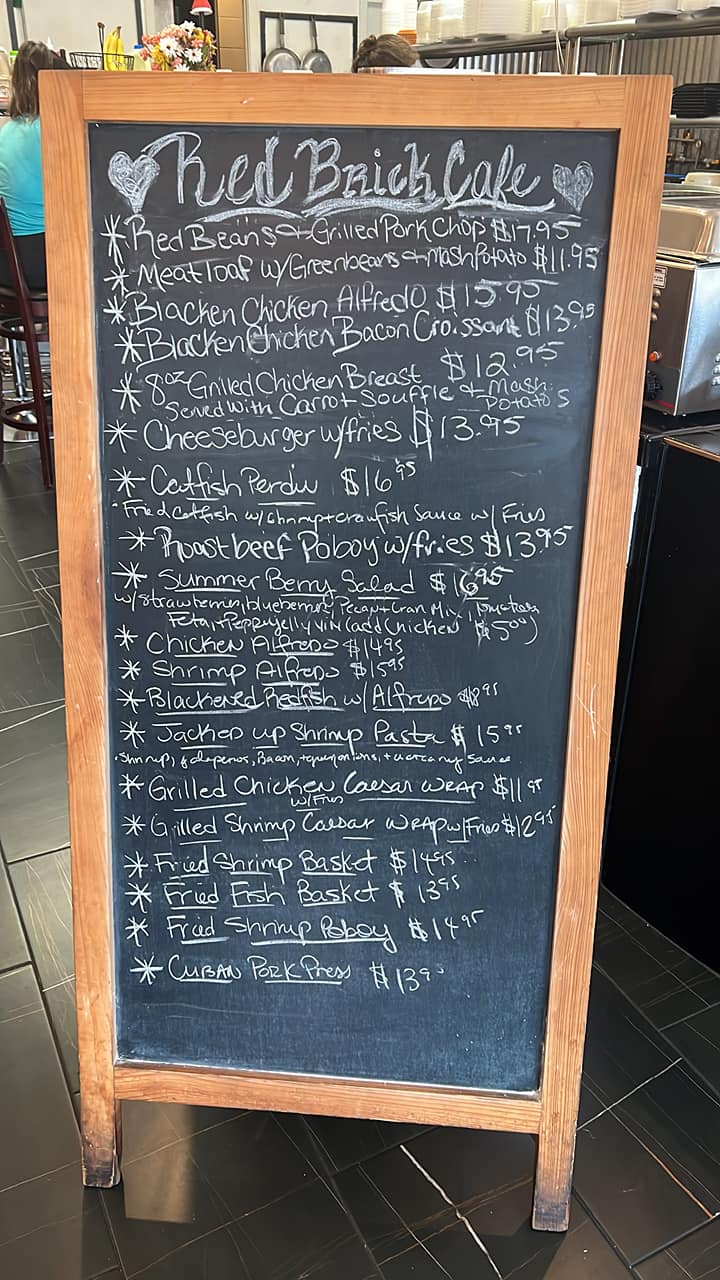 Red Brick Cafe
* Red Beans + Grilled Pork Chop $17.95
* Meatloaf w/Greenbeans + Mash Potato $11.95
* Blacken Chicken Alfredo $15.95
* Blacken Chicken Bacon Croissant $13.95
* 8oz Grilled Chicken Breast $12.95
Served with Carrot Souffle + Mash Potatos
* Cheeseburger w/fries $13.95
* Catfish Perdu $16.95
Fried Catfish w/ Shrimp + crawfish Sauce w/ Fries
* Roastbeef Poboy w/fries $13.95
* Summer Berry Salad $16.95
w/ strawberries, blueberries, Pecan + Cran Mix, tomatoes
Feta, + Pepperjelly VIN (add Chicken $5.00)
* Chicken Alfredo $14.95
* Shrimp Alfredo $15.95
* Blackened Redfish w/ Alfredo
* Jacked up Shrimp Pasta $15.95
Shrimp, Jalapenos, Bacon, + creamy Sauce
* Grilled Chicken Caesar Wrap $11.95
w/ Fries
* Grilled Shrimp Caesar Wrap w/ Fries $12.95
* Fried Shrimp Basket $14.95
* Fried Fish Basket $13.95
* Fried Shrimp Poboy $14.95
* Cuban Pork Press